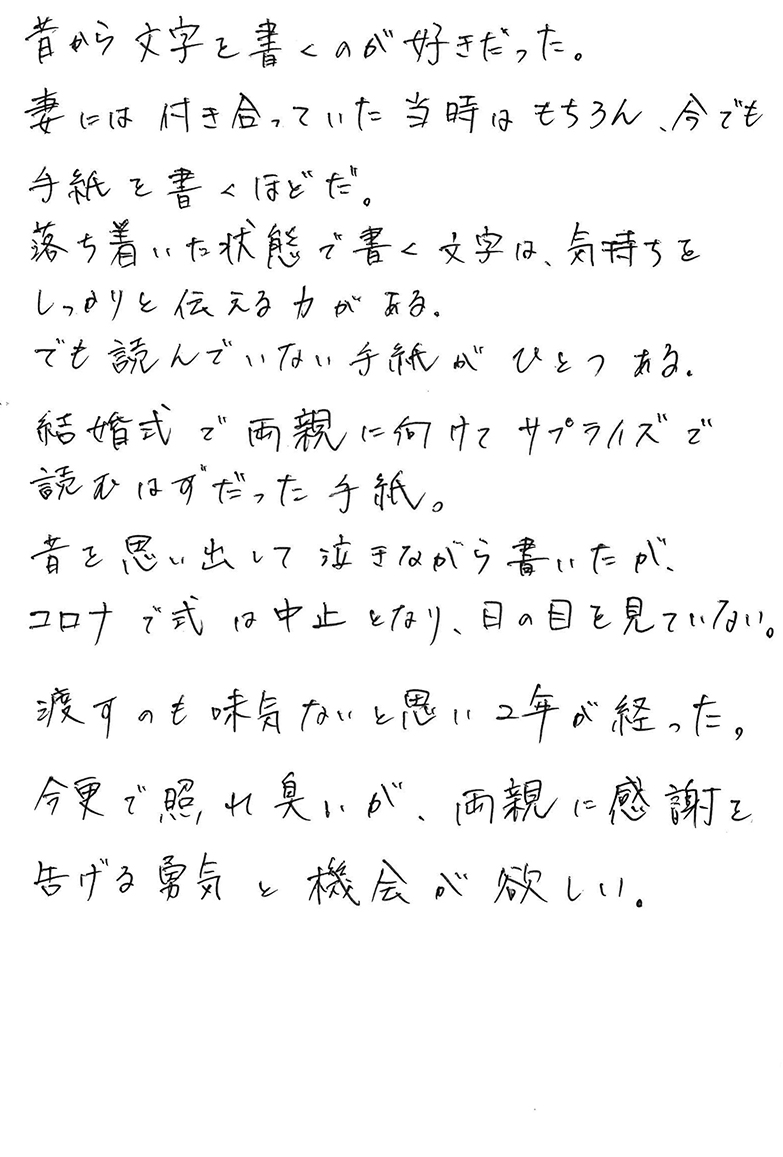 昔から文字を書くのが好きだった。
妻には付き合っていた当時はもちろん、今でも
手紙を書くほどだ。
落ち着いた状態で書く文字は、気持ちを
しっかりと伝える力がある。
でも読んでいない手紙がひとつある。
結婚式で両親に向けてサプライズで
読むはずだった手紙。
昔を思い出して泣きながら書いたが、
コロナで式は中止となり、日の目を見ていない。
渡すのも味気ないと思い2年が経った。
今更で照れ臭いが、両親に感謝を
告げる勇気と機会が欲しい。